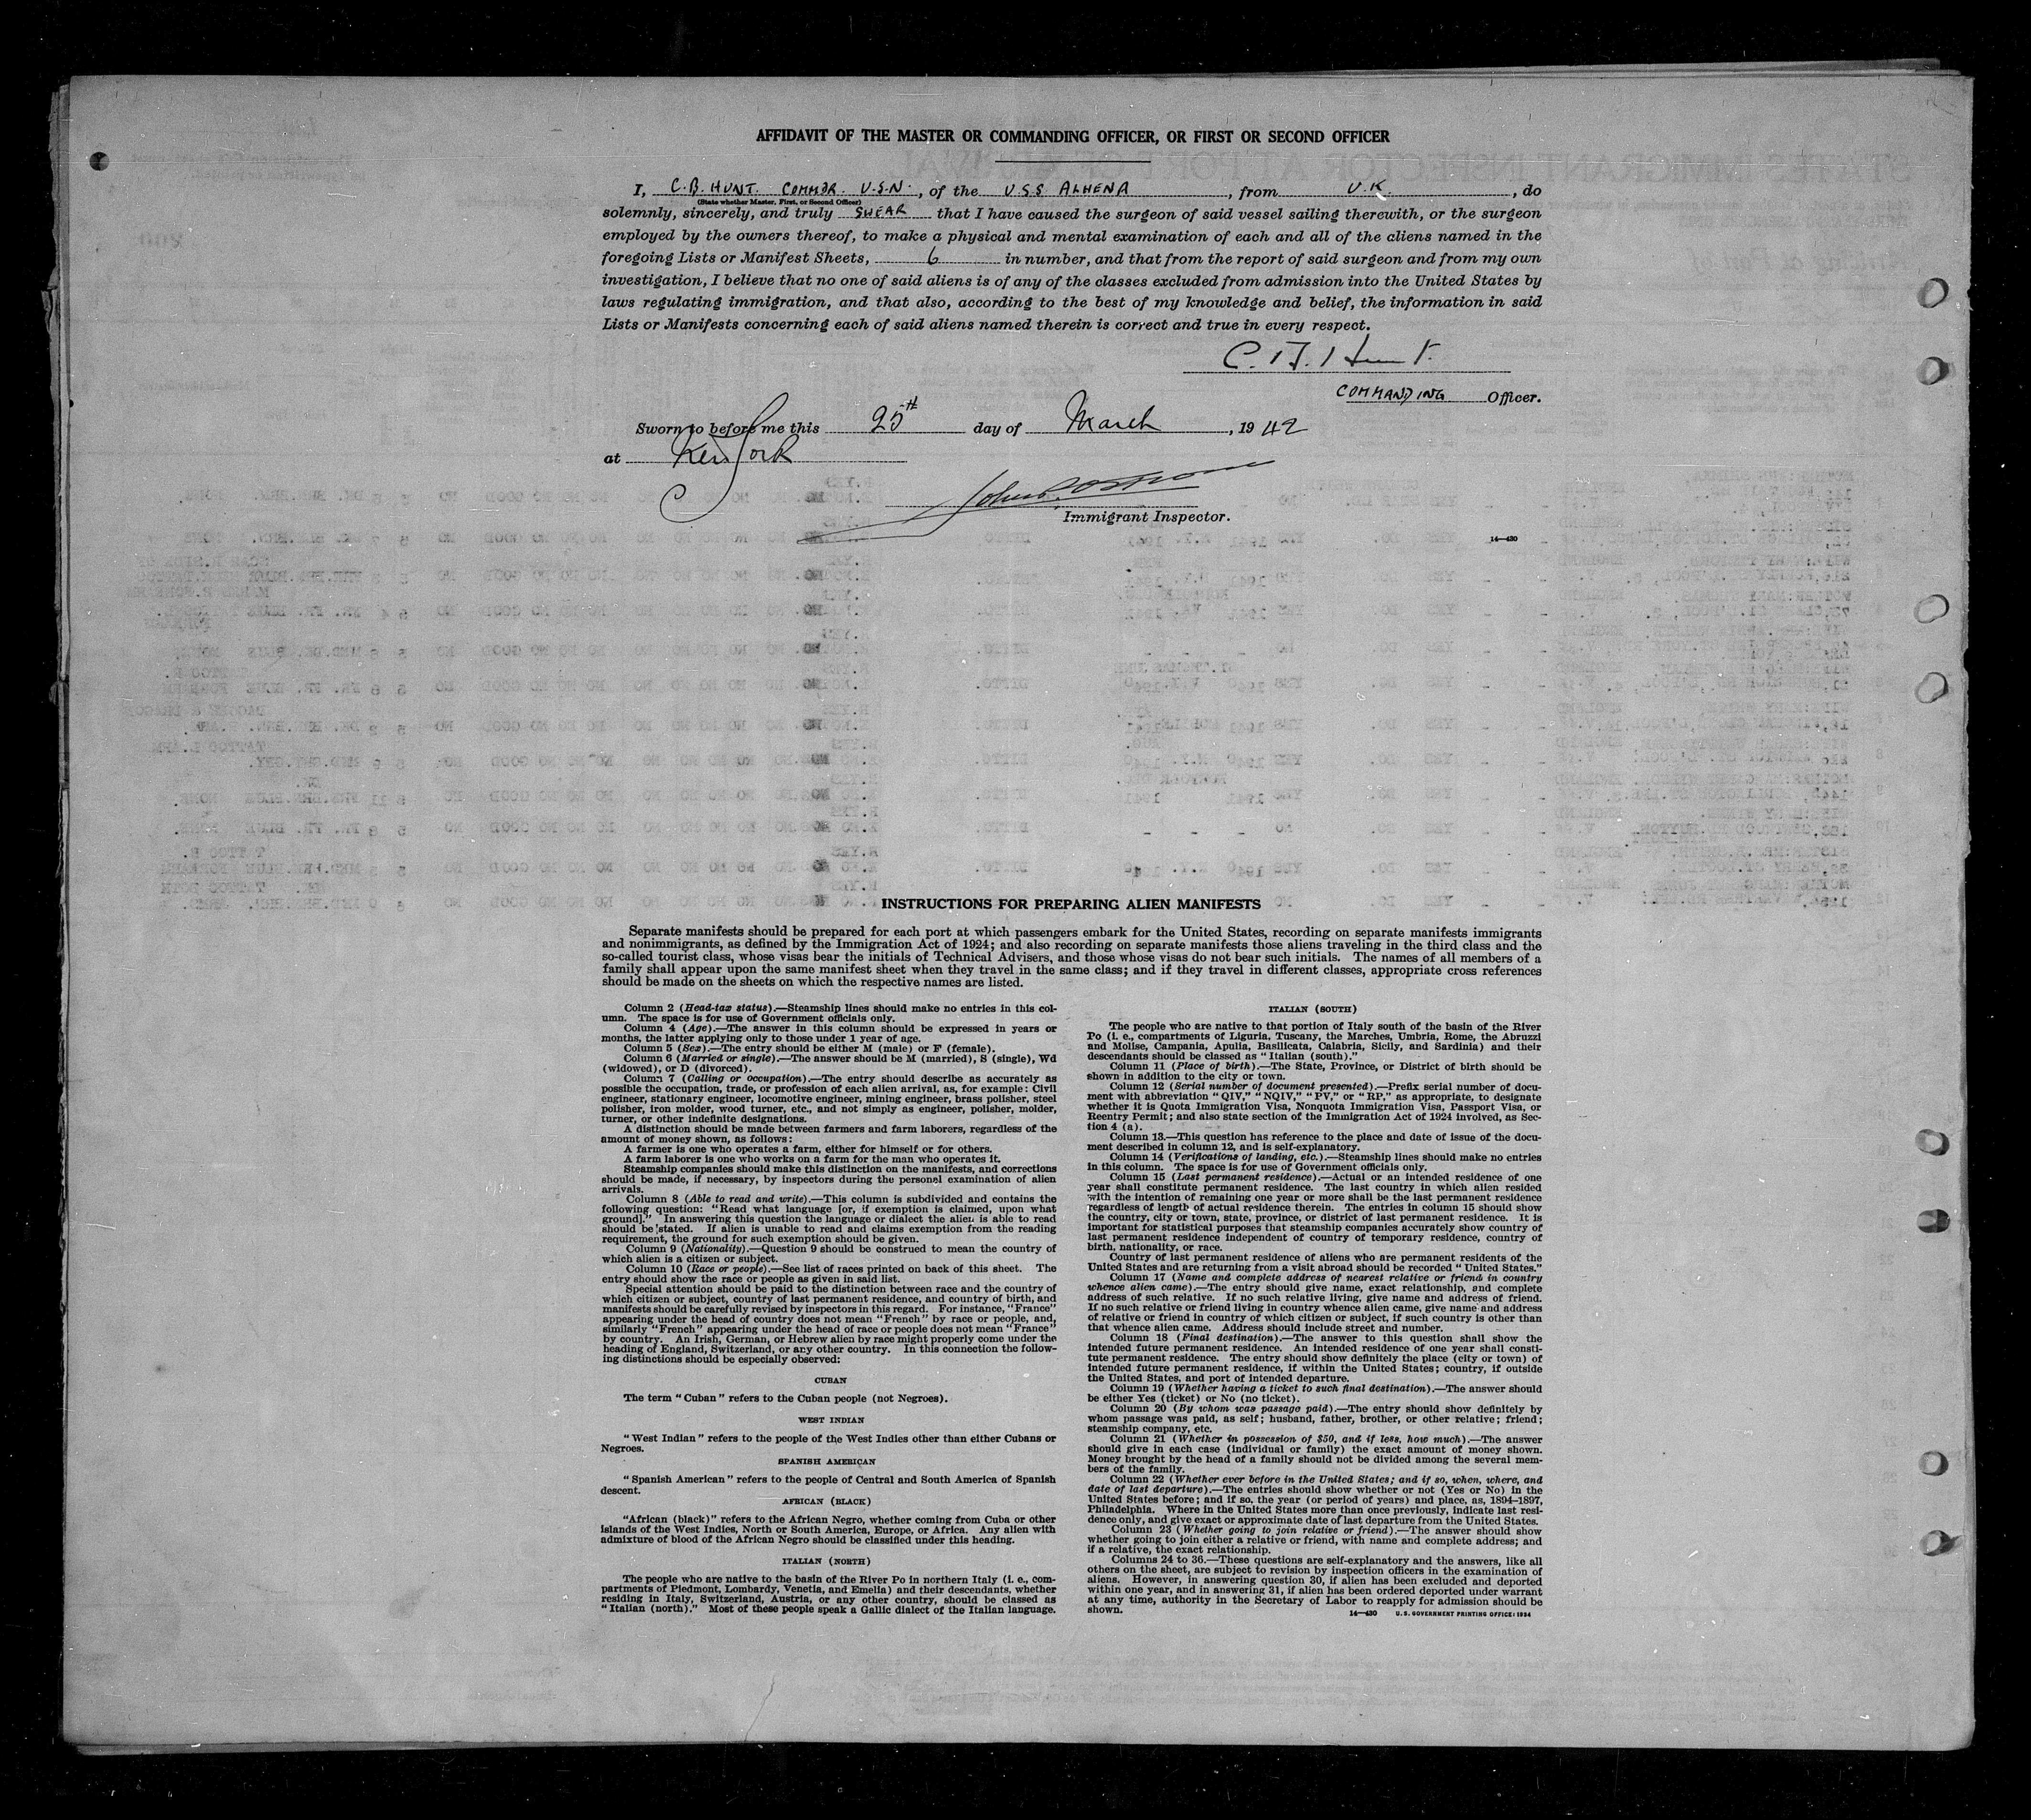 AFFIDAVIT OF THE MASTER OR COMMANDING OFFICER, OR FIRST OR SECOND OFFICER
I, C.B. HUNT. COMMDR. U.S.N., of the U.S.S. ALHENA, from U.K., do
(State whether Master, First, or Second Officer)
solemnly, sincerely, and truly SWEAR that I have caused the surgeon of said vessel sailing therewith, or the surgeon
employed by the owners thereof, to make a physical and mental examination of each and all of the aliens named in the
foregoing Lists or Manifest Sheets, 6 in number, and that from the report of said surgeon and from my own
investigation, I believe that no one of said aliens is of any of the classes excluded from admission into the United States by
laws regulating immigration, and that also, according to the best of my knowledge and belief, the information in said
Lists or Manifests concerning each of said aliens named therein is correct and true in every respect.
C. B. Hunt.
COMMANDING Officer.
Sworn to before me this 25th day of March, 1942
at New York
Immigrant Inspector.
14—430
INSTRUCTIONS FOR PREPARING ALIEN MANIFESTS
Separate manifests should be prepared for each port at which passengers embark for the United States, recording on separate manifests immigrants
and nonimmigrants, as defined by the Immigration Act of 1924; and also recording on separate manifests those aliens traveling in the third class and the
so-called tourist class, whose visas bear the initials of Technical Advisers, and those whose visas do not bear such initials. The names of all members of a
family shall appear upon the same manifest sheet when they travel in the same class; and if they travel in different classes, appropriate cross references
should be made on the sheets on which the respective names are listed.
Column 2 (Head-tax status).—Steamship lines should make no entries in this col-
umn. The space is for use of Government officials only.
Column 4 (Age).—The answer in this column should be expressed in years or
months, the latter applying only to those under 1 year of age.
Column 5 (Sex).—The entry should be either M (male) or F (female).
Column 6 (Married or single).—The answer should be M (married), S (single), Wd
(widowed), or D (divorced).
Column 7 (Calling or occupation).—The entry should describe as accurately as
possible the occupation, trade, or profession of each alien arrival, as, for example: Civil
engineer, stationary engineer, locomotive engineer, mining engineer, brass polisher, steel
polisher, iron molder, wood turner, etc., and not simply as engineer, polisher, molder,
turner, or other indefinite designations.
A distinction should be made between farmers and farm laborers, regardless of the
amount of money shown, as follows:
A farmer is one who operates a farm, either for himself or for others.
A farm laborer is one who works on a farm for the man who operates it.
Steamship companies should make this distinction on the manifests, and corrections
should be made, if necessary, by inspectors during the personel examination of alien
arrivals.
Column 8 (Able to read and write).—This column is subdivided and contains the
following question: "Read what language [or, if exemption is claimed, upon what
ground]." In answering this question the language or dialect the alien is able to read
should be stated. If alien is unable to read and claims exemption from the reading
requirement, the ground for such exemption should be given.
Column 9 (Nationality).—Question 9 should be construed to mean the country of
which alien is a citizen or subject.
Column 10 (Race or people).—See list of races printed on back of this sheet. The
entry should show the race or people as given in said list.
Special attention should be paid to the distinction between race and the country of
which citizen or subject, country of last permanent residence, and country of birth, and
manifests should be carefully revised by inspectors in this regard. For instance, "France"
appearing under the head of country does not mean "French" by race or people, and,
similarly "French" appearing under the head of race or people does not mean "France"
by country. An Irish, German, or Hebrew alien by race might properly come under the
heading of England, Switzerland, or any other country. In this connection the follow-
ing distinctions should be especially observed:
CUBAN
The term "Cuban" refers to the Cuban people (not Negroes).
WEST INDIAN
"West Indian" refers to the people of the West Indies other than either Cubans or
Negroes.
SPANISH AMERICAN
"Spanish American" refers to the people of Central and South America of Spanish
descent.
AFRICAN (BLACK)
"African (black)" refers to the African Negro, whether coming from Cuba or other
islands of the West Indies, North or South America, Europe, or Africa. Any alien with
admixture of blood of the African Negro should be classified under this heading.
ITALIAN (NORTH)
The people who are native to the basin of the River Po in northern Italy (i. e., com-
partments of Piedmont, Lombardy, Venetia, and Emelia) and their descendants, whether
residing in Italy, Switzerland, Austria, or any other country, should be classed as
"Italian (north)." Most of these people speak a Gallic dialect of the Italian language.
ITALIAN (SOUTH)
The people who are native to that portion of Italy south of the basin of the River
Po (i. e., compartments of Liguria, Tuscany, the Marches, Umbria, Rome, the Abruzzi
and Molise, Campania, Apulia, Basilicata, Calabria, Sicily, and Sardinia) and their
descendants should be classed as "Italian (south)."
Column 11 (Place of birth).—The State, Province, or District of birth should be
shown in addition to the city or town.
Column 12 (Serial number of document presented).—Prefix serial number of docu-
ment with abbreviation "QIV," "NQIV," "PV," or "RP," as appropriate, to designate
whether it is Quota Immigration Visa, Nonquota Immigration Visa, Passport Visa, or
Reentry Permit; and also state section of the Immigration Act of 1924 involved, as Sec-
tion 4 (a).
Column 13.—This question has reference to the place and date of issue of the docu-
ment described in column 12, and is self-explanatory.
Column 14 (Verifications of landing, etc.).—Steamship lines should make no entries
in this column. The space is for use of Government officials only.
Column 15 (Last permanent residence).—Actual or an intended residence of one
year shall constitute permanent residence. The last country in which alien resided
with the intention of remaining one year or more shall be the last permanent residence
regardless of length of actual residence therein. The entries in column 15 should show
the country, city or town, state, province, or district of last permanent residence. It is
important for statistical purposes that steamship companies accurately show country of
last permanent residence independent of country of temporary residence, country of
birth, nationality, or race.
Country of last permanent residence of aliens who are permanent residents of the
United States and are returning from a visit abroad should be recorded "United States."
Column 17 (Name and complete address of nearest relative or friend in country
whence alien came).—The entry should give name, exact relationship, and complete
address of such relative. If no such relative living, give name and address of friend.
If no such relative or friend living in country whence alien came, give name and address
of relative or friend in country of which citizen or subject, if such country is other than
that whence alien came. Address should include street and number.
Column 18 (Final destination).—The answer to this question shall show the
intended future permanent residence. An intended residence of one year shall consti-
tute permanent residence. The entry should show definitely the place (city or town) of
intended future permanent residence, if within the United States; country, if outside
the United States, and port of intended departure.
Column 19 (Whether having a ticket to such final destination).—The answer should
be either Yes (ticket) or No (no ticket).
Column 20 (By whom was passage paid).—The entry should show definitely by
whom passage was paid, as self; husband, father, brother, or other relative; friend;
steamship company, etc.
Column 21 (Whether in possession of $50, and if less, how much).—The answer
should give in each case (individual or family) the exact amount of money shown.
Money brought by the head of a family should not be divided among the several mem-
bers of the family.
Column 22 (Whether ever before in the United States; and if so, when, where, and
date of last departure).—The entries should show whether or not (Yes or No) in the
United States before; and if so, the year (or period of years) and place, as, 1894–1897,
Philadelphia. Where in the United States more than once previously, indicate last resi-
dence only, and give exact or approximate date of last departure from the United States.
Column 23 (Whether going to join relative or friend).—The answer should show
whether going to join either a relative or friend, with name and complete address; and
if a relative, the exact relationship.
Columns 24 to 36.—These questions are self-explanatory and the answers, like all
others on the sheet, are subject to revision by inspection officers in the examination of
aliens. However, in answering question 30, if alien has been excluded and deported
within one year, and in answering 31, if alien has been ordered deported under warrant
at any time, authority in the Secretary of Labor to reapply for admission should be
shown.
14—430 U. S. GOVERNMENT PRINTING OFFICE: 1934